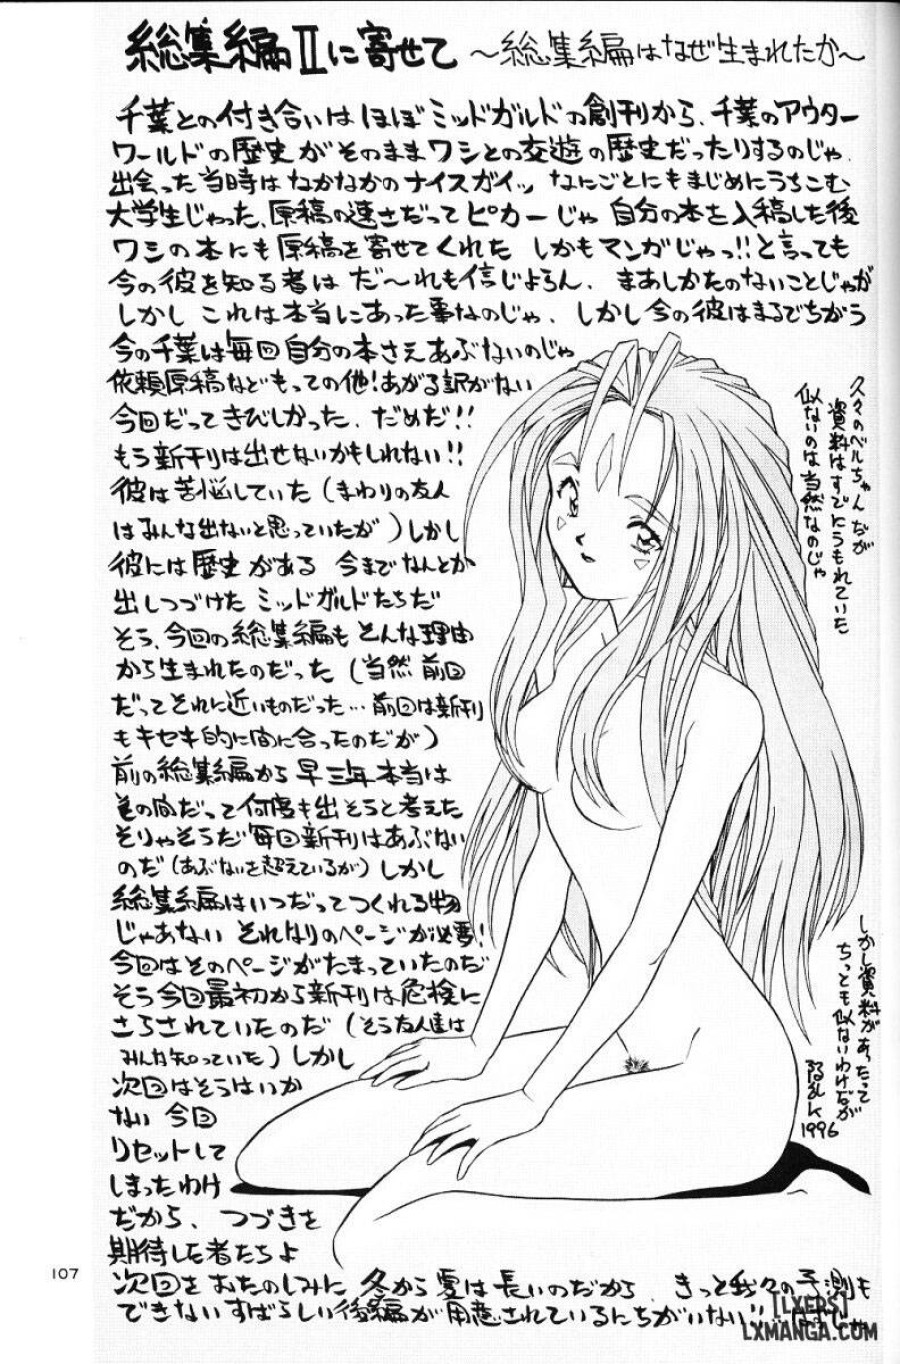 総集編Ⅱに寄せて ～総集編はなぜ生まれたか～
千葉との付き合いはほぼミッドガルドの創刊から、千葉のアウター
ワールドの歴史がそのままワシとの交遊の歴史だったりするのじゃ、
出会った当時はなかなかのナイスガイッ なにごとにもまじめにうちこむ
大学生じゃった、原稿の速さだってピカ一じゃ 自分の本を入稿した後
ワシの本にも原稿を寄せてくれた しかもマンガじゃっ!!と言っても
今の彼を知る者は だ～れも信じよろん、まあしかたのないことじゃが
しかし これは本当にあった事なのじゃ、しかし今の彼はまるでちがう
今の千葉は毎回自分の本さえあぶないのじゃ
依頼原稿などもっての他!あがる訳がない
今回だってきびしかった、だめだ!!
もう新刊は出せないかもしれない!!
彼は苦悩していた(まわりの友人
はみんな出ないと思っていたが)しかし
彼には歴史がある 今までなんとか
出しつづけたミッドガルドたちだ
そう、今回の総集編もそんな理由
から生まれたのだった(当然前回
だってそれに近いものだった…前回は新刊
もキセキ的に間に合ったのだが)
前の総集編から早三年本当は
その間だって何度も出そうと考えた
そりゃそうだ毎回新刊はあぶない
のだ(あぶないを超えているが)しかし
総集編はいつだってつくれる物
じゃあない それなりのページが必要!
今回はそのページがたまっていたのだ
そう今回最初から新刊は危険に
さらされていたのだ(そう友人達は
みんな知っていた)しかし
次回はそうはいか
ない 今回
リセットして
しまったわけ
だから、つづきを
期待した者たちよ
次回をおたのしみに 冬から夏は長いのだから、きっと我々の予測も
できないすばらしい後編が用意されているにちがいない
久々のベルちゃんだが
資料はすでにうもれていた
似ないのは当然なのじゃ
しかし資料があったって
ちっとも似ないわけだが
1996
107
[LXERS]
LXMANGA.COM